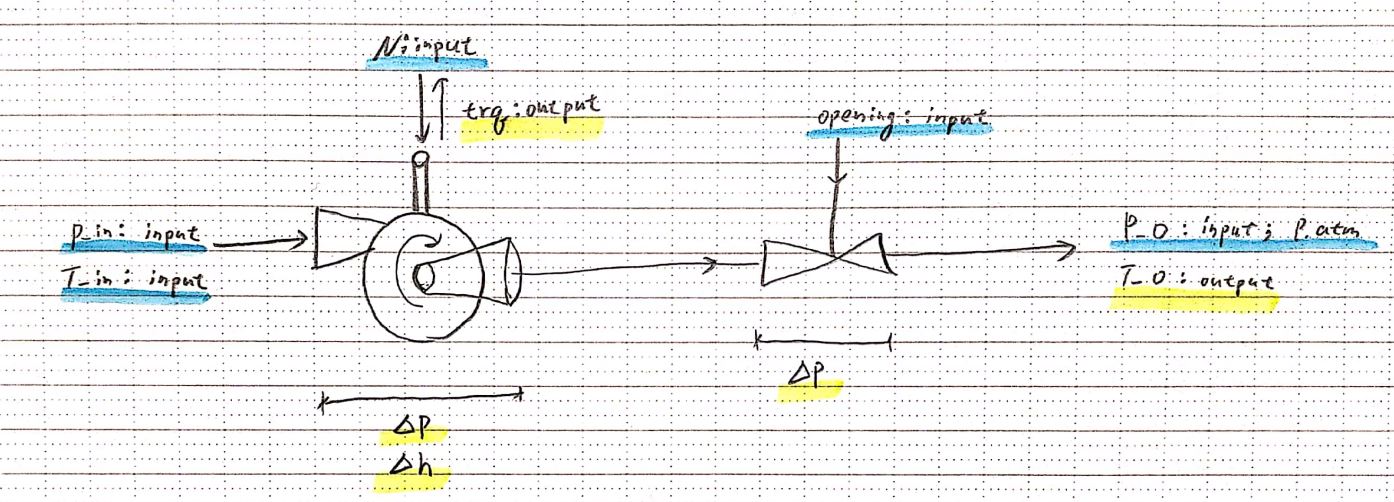 N: input
trq: output
opening: input
P_in: input
T_in: input
P_0: input; P.atm
T_0: output
ΔP
ΔP
Δh